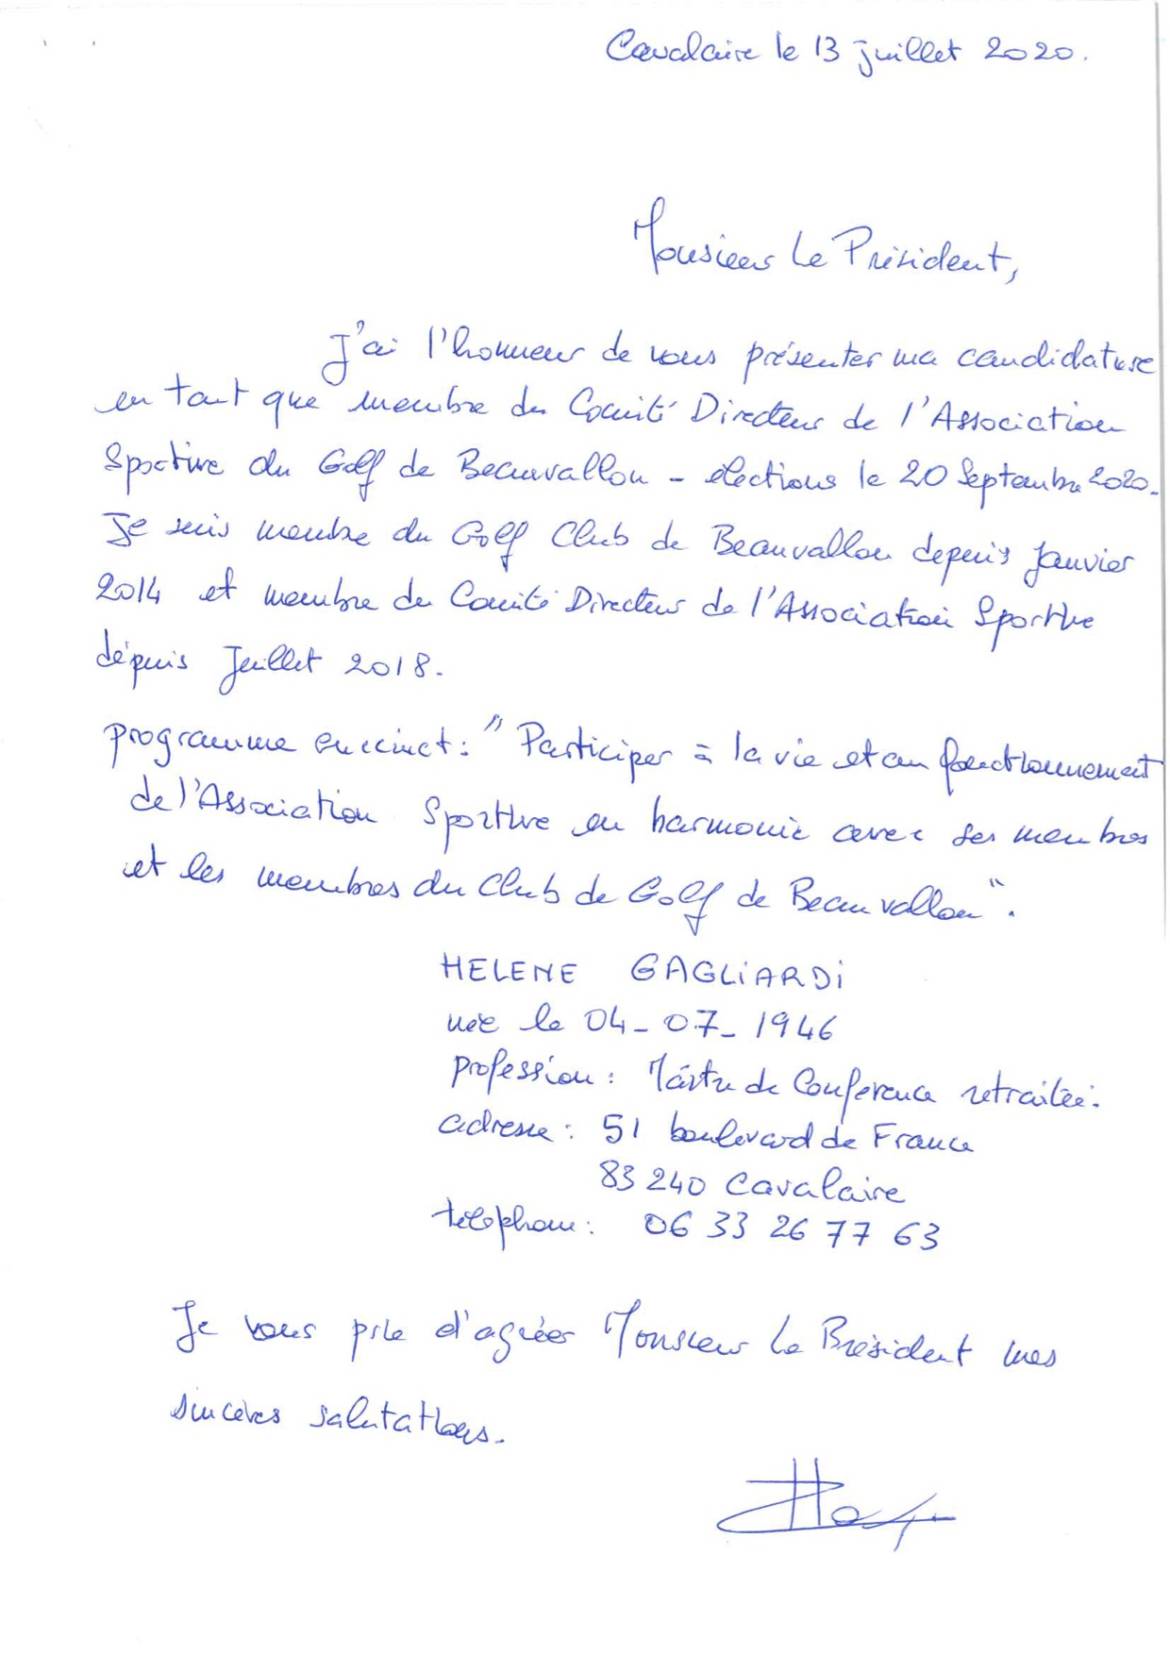 Cavalaire le 13 juillet 2020.
Monsieur Le Président,
J'ai l'honneur de vous présenter ma candidature
en tant que membre du Comité Directeur de l'Association
Sportive du Golf de Beauvallon - élections le 20 Septembre 2020.
Je suis membre du Golf Club de Beauvallon depuis Janvier
2014 et membre du Comité Directeur de l'Association Sportive
depuis Juillet 2018.
programme succinct : " Participer à la vie et au fonctionnement
de l'Association Sportive en harmonie avec ses membres
et les membres du Club de Golf de Beauvallon ".
HELENE GAGLIARDI
née le 04-07-1946
profession : Maître de Conférence retraitée.
adresse : 51 boulevard de France
83 240 Cavalaire
téléphone : 06 33 26 77 63
Je vous prie d'agréer Monsieur Le Président mes
sincères salutations.